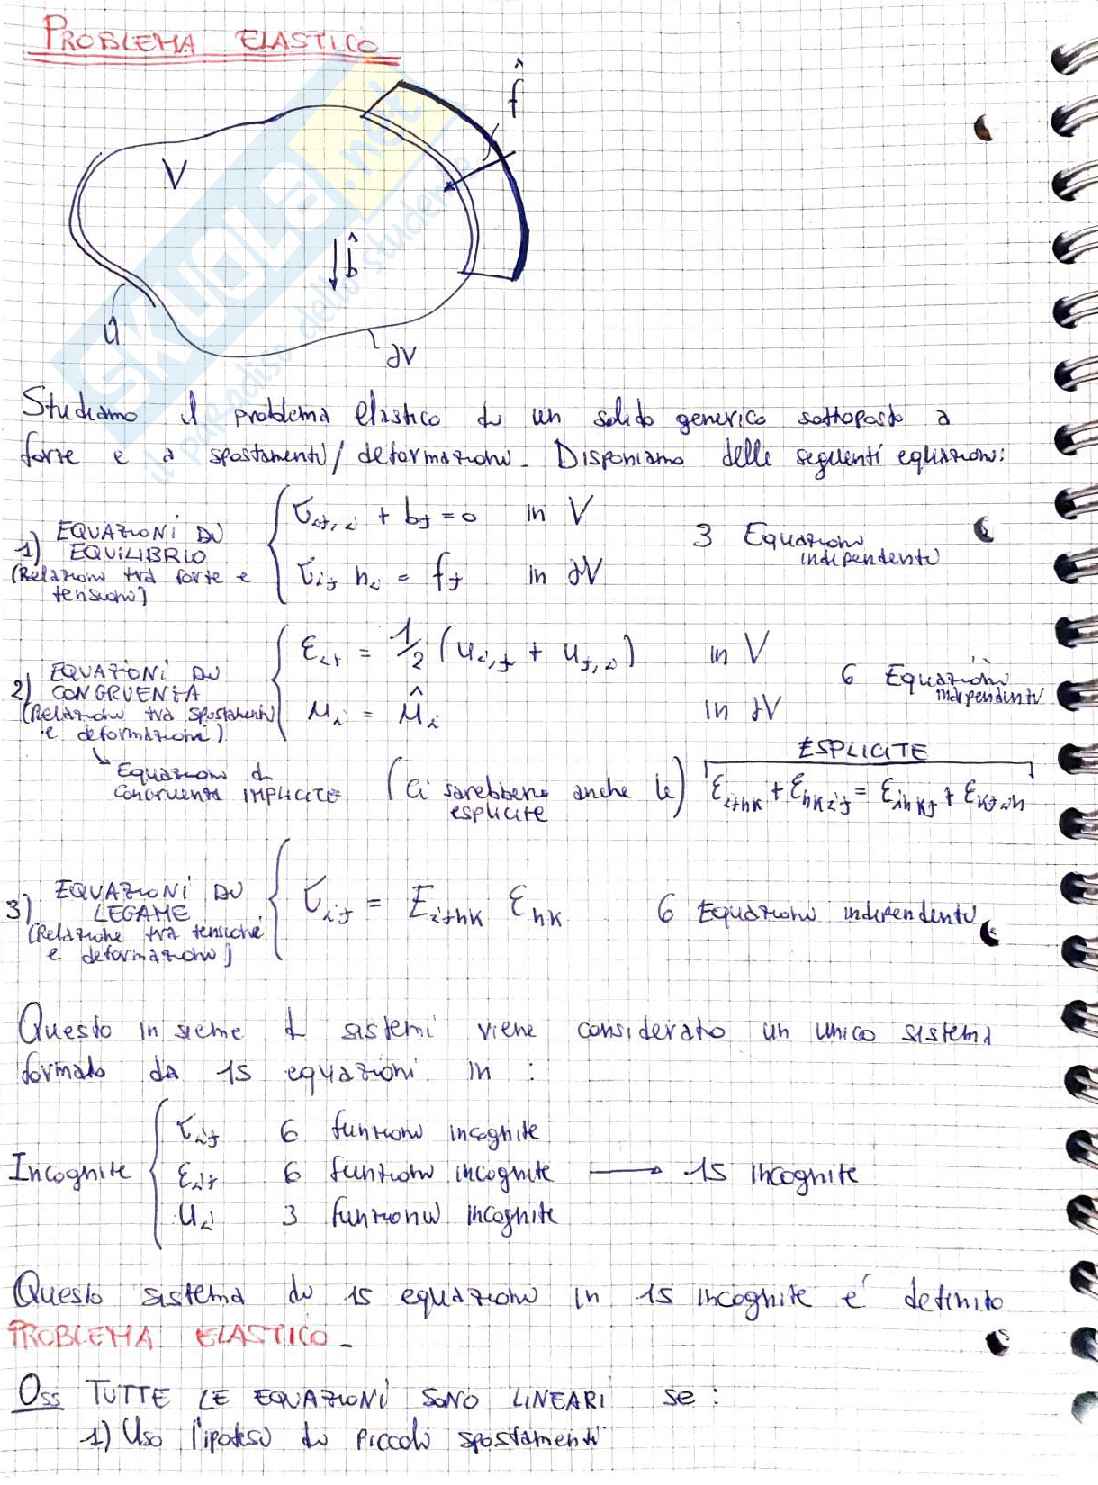 PROBLEMA ELASTICO
f̂
V
b̂
û
∂V
SKUOLA.net
il paradiso dello studente
Studiamo il problema elastico di un solido generico sottoposto a
forze e a spostamenti/deformazioni. Disponiamo delle seguenti equazioni:
1) EQUAZIONI DI EQUILIBRIO (Relazioni tra forze e tensioni)
σij,i + bj = 0 in V
σij ni = fj in ∂V
3 Equazioni indipendenti
2) EQUAZIONI DI CONGRUENZA (Relazioni tra spostamenti e deformazioni)
εij = 1/2 (ui,j + uj,i) in V
ui = ûi in ∂V
6 Equazioni indipendenti
Equazioni di congruenza IMPLICITE (Ci sarebbero anche le esplicite)
ESPLICITE
εijhk + εhkij = εihkj + εkjih
3) EQUAZIONI DI LEGAME (Relazione tra tensioni e deformazioni)
σij = Eijhk εhk
6 Equazioni indipendenti
Questo insieme di sistemi viene considerato un unico sistema
formato da 15 equazioni in :
Incognite
σij 6 funzioni incognite
εij 6 funzioni incognite → 15 incognite
ui 3 funzioni incognite
Questo sistema di 15 equazioni in 15 incognite é definito
PROBLEMA ELASTICO.
Oss TUTTE LE EQUAZIONI SONO LINEARI se :
1) Uso l'ipotesi di piccoli spostamenti